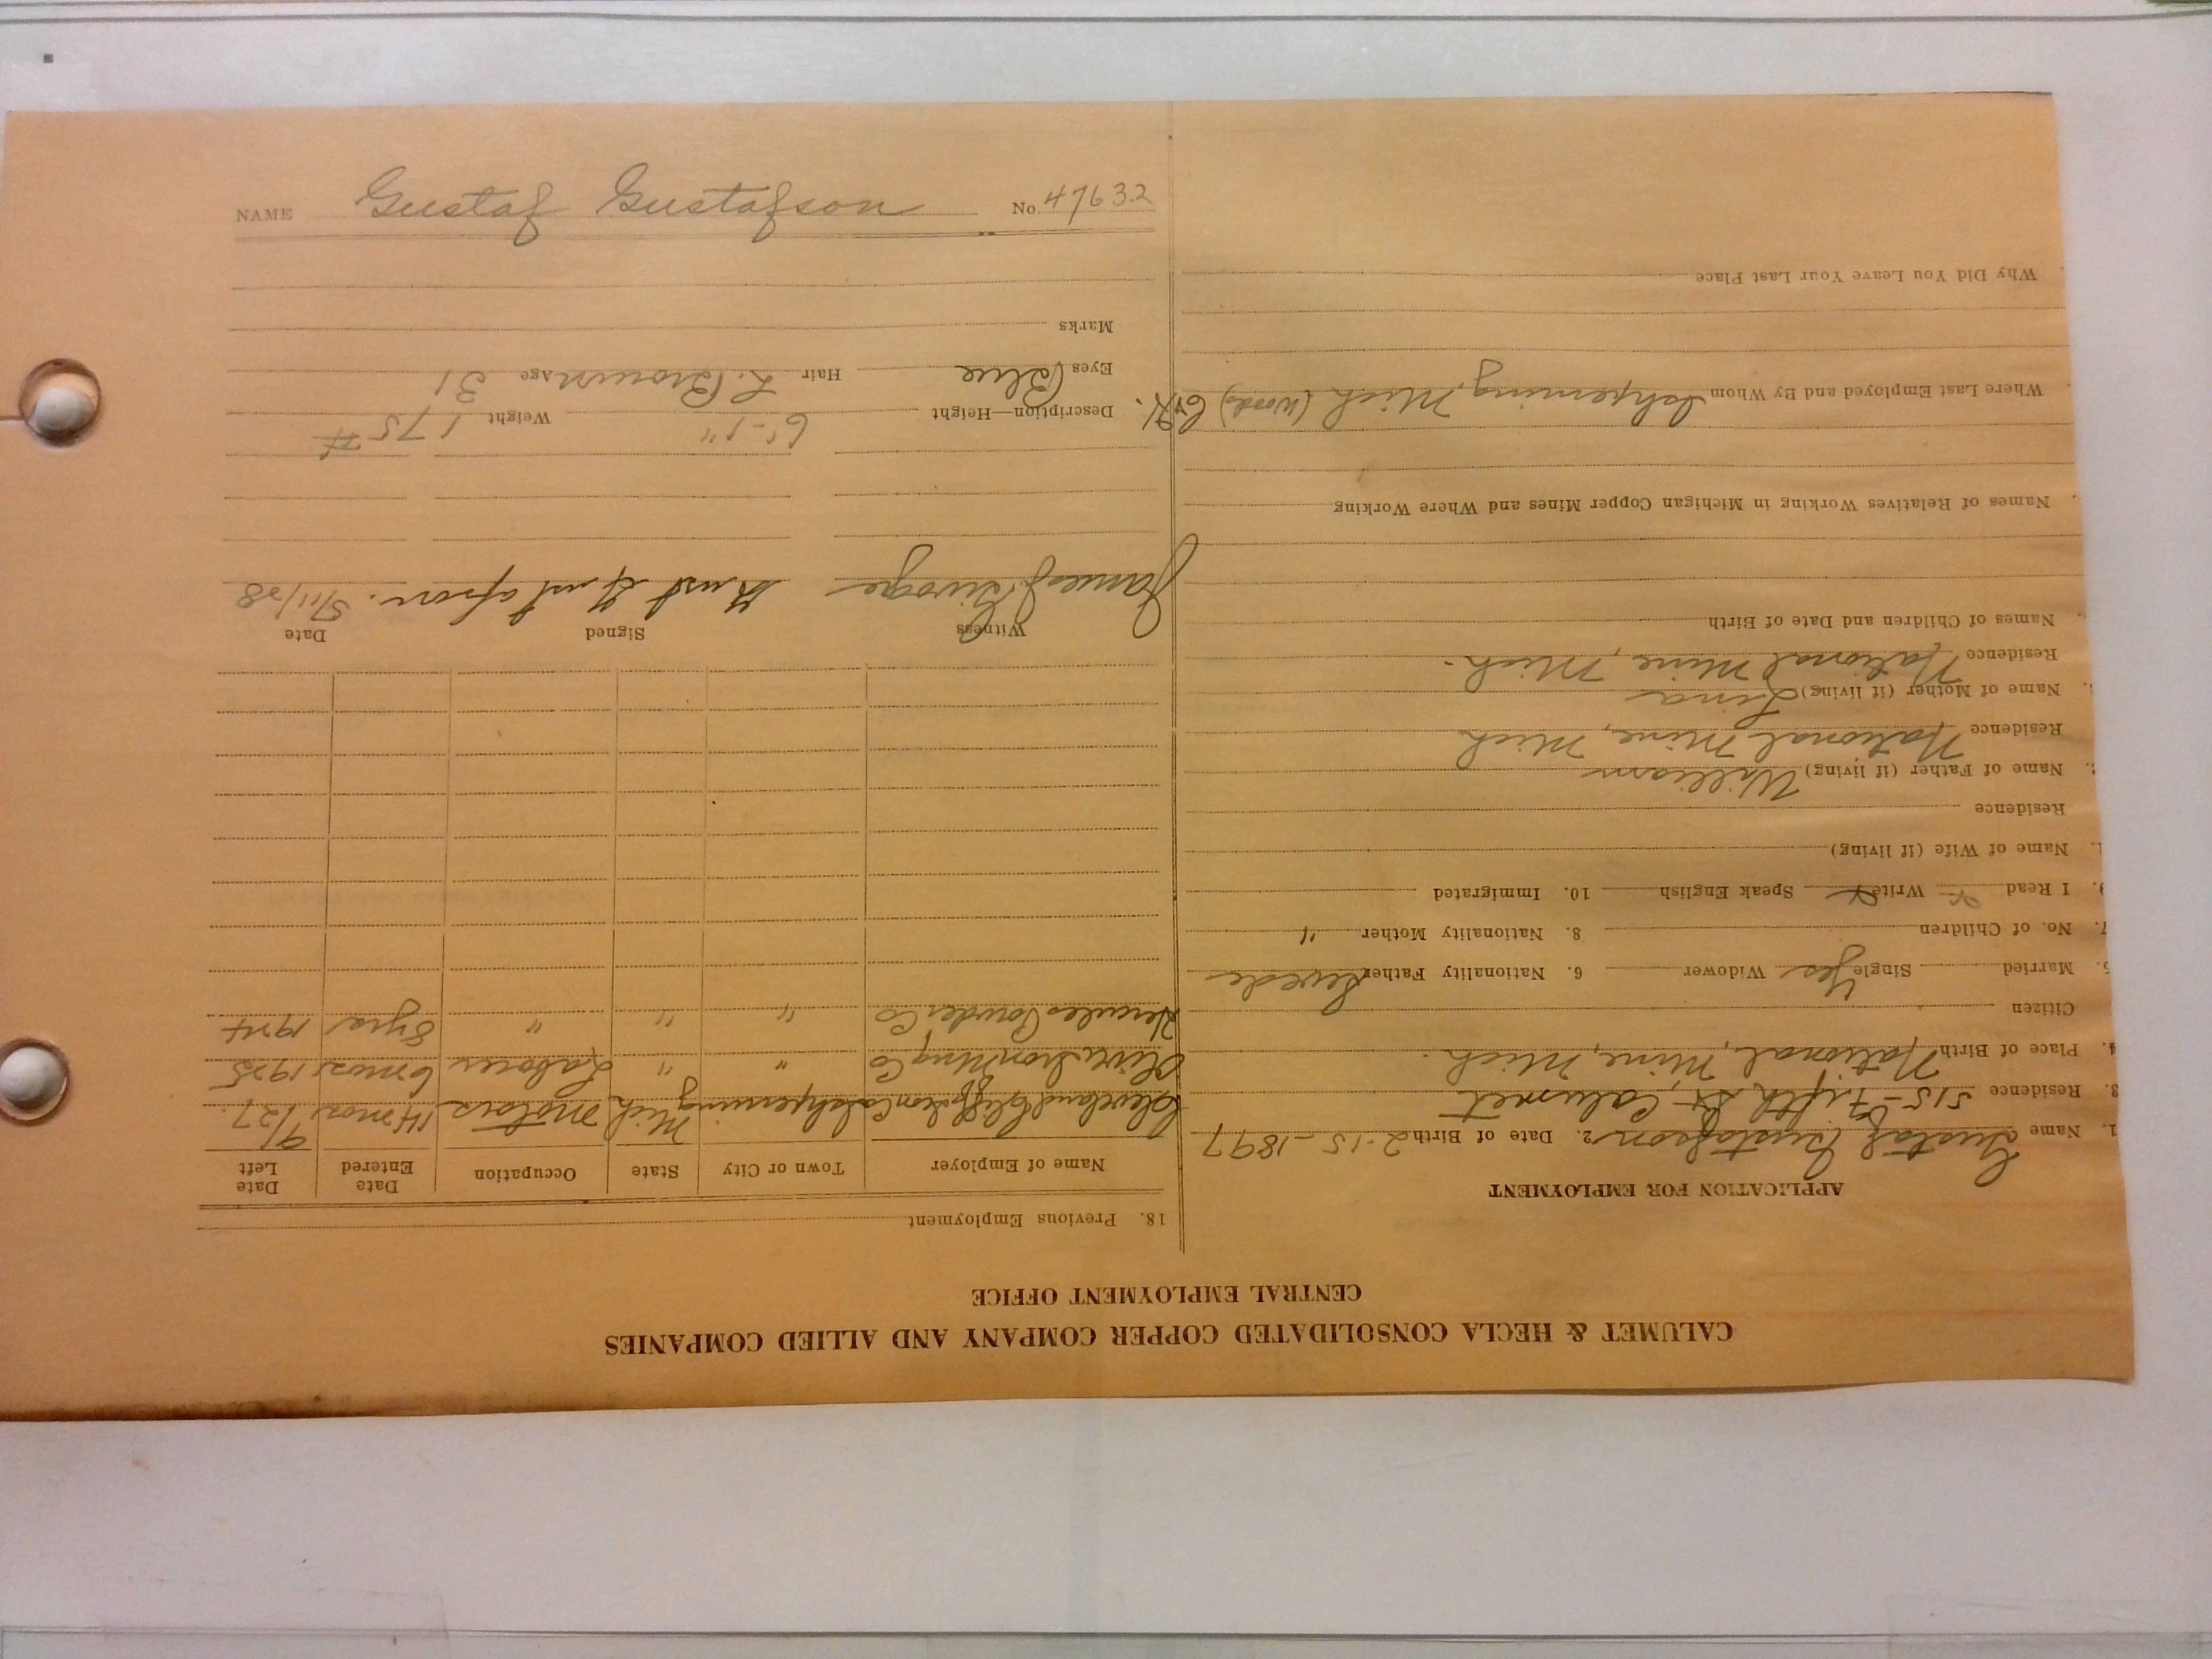 CALUMET & HECLA CONSOLIDATED COPPER COMPANY AND ALLIED COMPANIES
CENTRAL EMPLOYMENT OFFICE
APPLICATION FOR EMPLOYMENT
1. Name Gustaf Gustafson 2. Date of Birth 2-15-1897
3. Residence 515-Fifth St Calumet
4. Place of Birth National Mine, Mich.
Citizen
5. Married Single Yes Widower 6. Nationality Father Swede
7. No. of Children 8. Nationality Mother "
9. I Read Write Speak English 10. Immigrated
1. Name of Wife (if living)
Residence
2. Name of Father (if living) William
Residence National Mine, Mich
Name of Mother (if living) Lina
Residence National Mine, Mich.
Names of Children and Date of Birth
Names of Relatives Working in Michigan Copper Mines and Where Working
Where Last Employed and By Whom Ishpeming, Mich (Woods)
Why Did You Leave Your Last Place
18. Previous Employment
Name of Employer Town or City State Occupation Date Entered Date Left
Cleveland Cliffs Iron Co Ishpeming Mich Motors 14 mos 9/1/27
Oliver Iron Mng Co " " Laborer 6 mos 1925
Hercules Powder Co " " " 8 yrs 1924
Witness Signed Date
James J. Gust Gustafson. 5/11/28
Description—Height 6'-1" Weight 175 #
Eyes Blue Hair L. Brown Age 31
Marks
NAME Gustaf Gustafson No. 47632